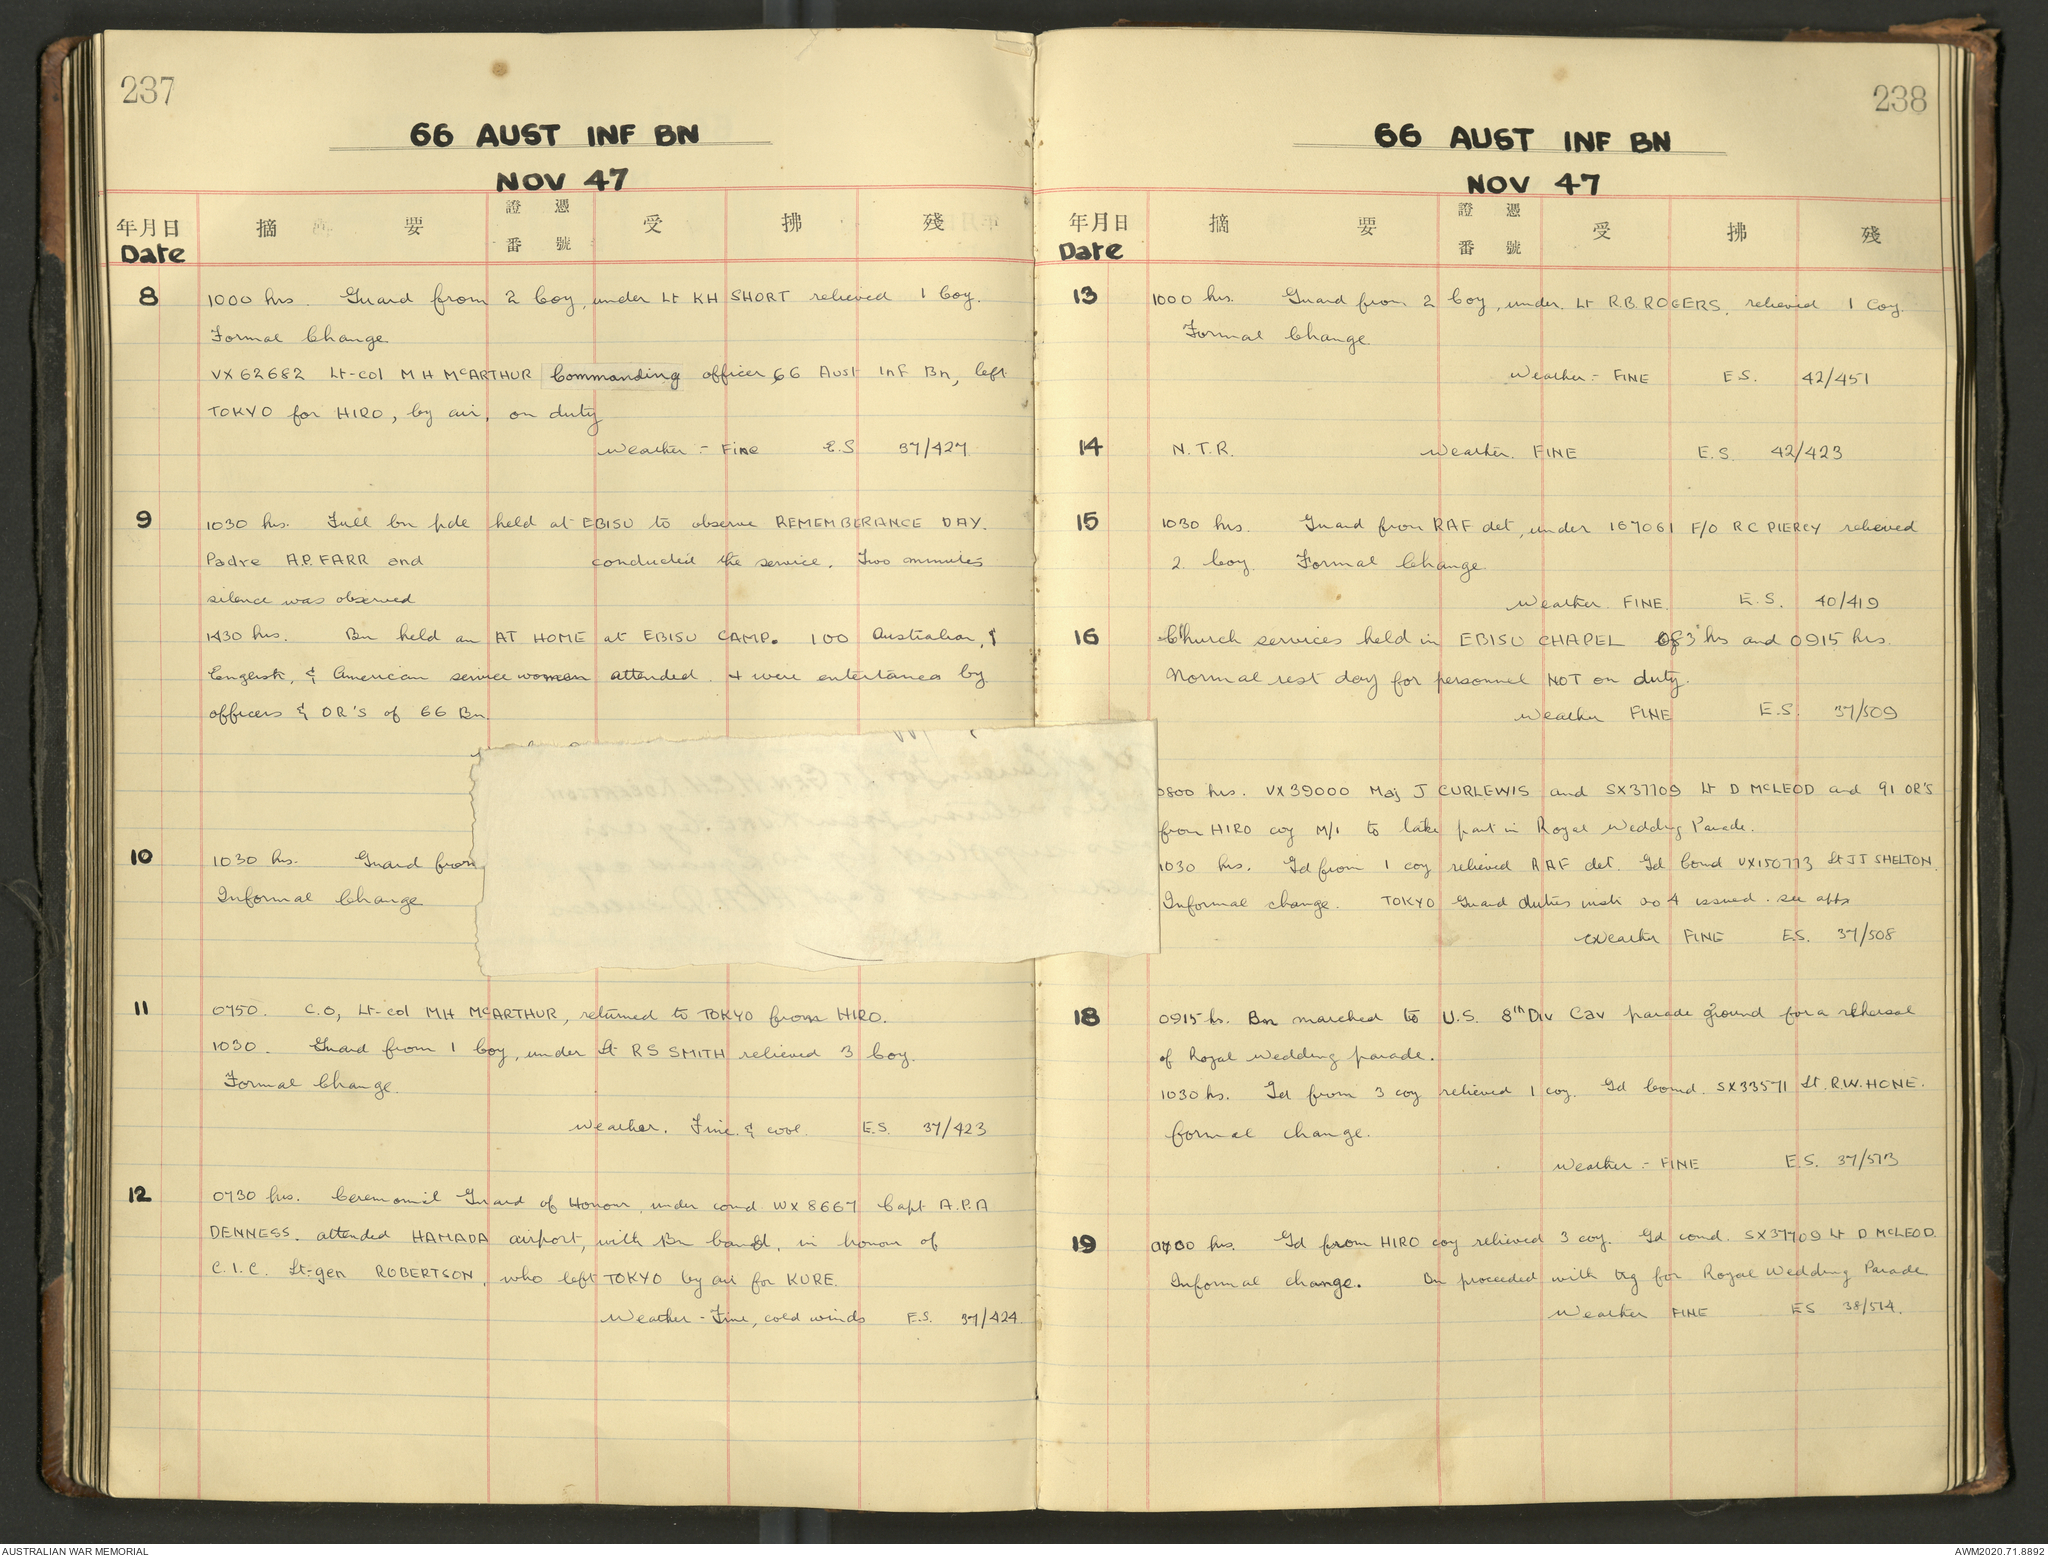 237
66 AUST INF BN
NOV 47
年月日 摘 要 證憑 受 拂 殘
番號
Date
8 1000 hrs. Guard from 2 Coy, under Lt KH SHORT relieved 1 Coy.
Formal Change
VX62682 Lt-col M H McARTHUR Commanding officer 66 Aust Inf Bn, left
TOKYO for HIRO, by air, on duty
Weather :- Fine E.S 37/427
9 1030 hrs. Full bn pde held at EBISU to observe REMEMBERANCE DAY.
Padre A.P. FARR and conducted the service. Two minutes
silence was observed
1430 hrs. Bn held an AT HOME at EBISU CAMP. 100 Australian, &
English, & American service women attended & were entertained by
officers & OR'S of 66 Bn
10 1030 hrs. Guard from
Informal Change
11 0750. C.O, Lt-col MH McARTHUR, returned to TOKYO from HIRO.
1030. Guard from 1 Coy, under Lt RS SMITH relieved 3 Coy.
Formal Change.
Weather. Fine & cool. E.S. 37/423
12 0730 hrs. Ceremonial Guard of Honour, under comd WX 8667 Capt A.P.A
DENNESS. attended HAMADA airport, with Bn band, in honour of
C.I.C. Lt-gen ROBERTSON, who left TOKYO by air for KURE.
Weather - Fine, cold winds E.S. 37/424
238
66 AUST INF BN
NOV 47
年月日 摘 要 證憑 受 拂 殘
番號
Date
13 1000 hrs. Guard from 2 Coy, under Lt R.B. ROGERS, relieved 1 Coy.
Formal Change
Weather :- FINE E.S. 42/451
14 N.T.R. Weather. FINE E.S. 42/423
15 1030 hrs. Guard from RAF det, under 167061 F/O RC PIERCY relieved
2. Coy. Formal Change
Weather FINE. E.S. 40/419
16 Church services held in EBISU CHAPEL hrs and 0915 hrs.
Normal rest day for personnel NOT on duty.
Weather FINE E.S. 37/509
0800 hrs. VX39000 Maj J CURLEWIS and SX37709 Lt D McLEOD and 91 OR'S
from HIRO coy M/I to take part in Royal Wedding Parade.
1030 hrs. Gd from 1 coy relieved RAF det. Gd Comd VX150773 Lt JT SHELTON.
Informal change. TOKYO Guard duties instr no 4 issued. see apps
Weather FINE E.S. 37/508
18 0915 hs. Bn marched to U.S. 8th Div Cav parade ground for a rehersal
of Royal Wedding parade.
1030 hs. Gd from 3 coy relieved 1 coy. Gd Comd. SX33571 Lt. R.W. HONE.
formal change.
Weather :- FINE E.S. 37/513
19 0700 hrs. Gd from HIRO coy relieved 3 coy. Gd comd. SX37709 Lt D McLEOD.
Informal change. Bn proceeded with trg for Royal Wedding Parade
Weather FINE ES 38/514.
AUSTRALIAN WAR MEMORIAL
AWM2020.71.8892